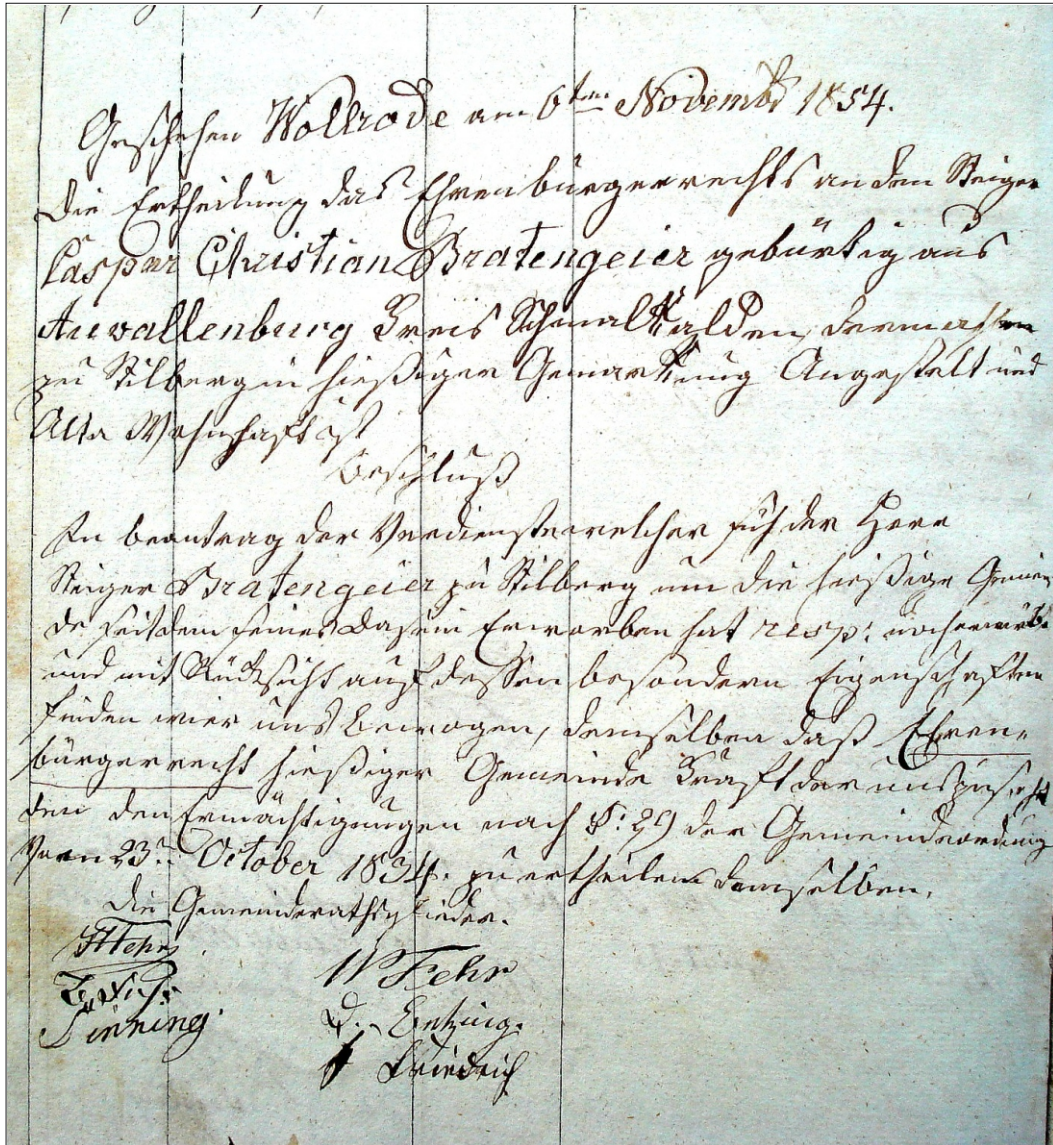 Geschehen Wollrode am 6ten Novembr 1854.
Die Ertheilung das Ehrenbürgerrechts an den Steiger
Caspar Christian Bratengeier gebürtig aus
Auwallenburg Kreis Schmalkalden, dermahlen
zu Stilberg in hießiger Gemarkung Angestelt und
Alta Wohnhaft ist
Beschluß
In beantrag der Verdienste welcher sich der Herr
Steiger Bratengeier zu Stilberg um die hießige Gemein
de seit dem seines Dasein Erworben hat resp: noch erwirbt
und mit Rücksicht auf dessen besondern Eigenschaften
finden wier uns bewogen, demselben daß Ehren-
bürgerrecht hießiger Gemeinde Kraft der uns
den Ermächtigungen nach §: 29 der Gemeindeordnung
Vom 23ten October 1834. zu ertheilen demselben.
Die Gemeinderathsglieder.
Fehr W Fehr
Sinning. Entzing.
Friedrich